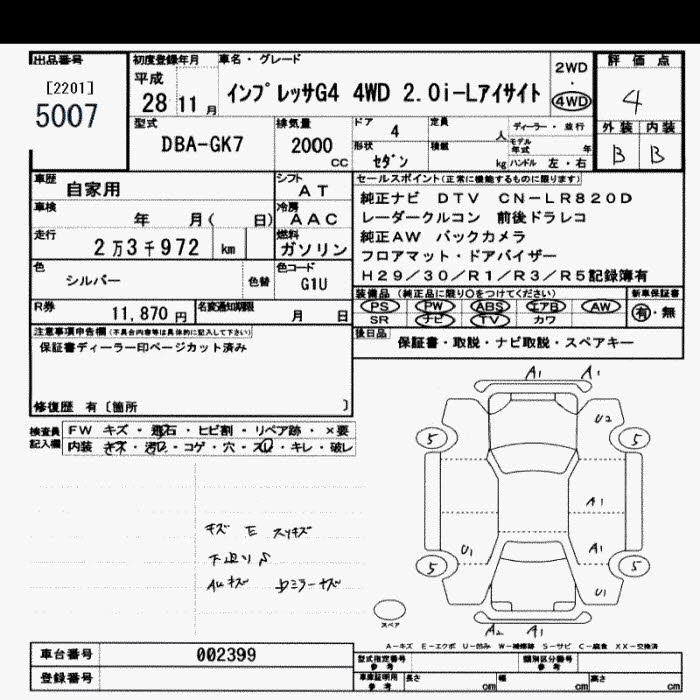 出品番号
[2201]
5007
初度登録年月
平成
28 11 月
車名・グレード
インプレッサG4 4WD 2.0i-Lアイサイト
2WD
・
4WD
評価点
4
外装 内装
B B
型式
DBA-GK7
排気量
2000
cc
ドア
4
形状
セダン
定員
人
積載
kg
ディーラー・並行
モデル年式 年
ハンドル 左・右
車歴
自家用
シフト
AT
車検
年 月( 日)
冷房
AAC
走行
2万3千972 km
燃料
ガソリン
色
シルバー
色替
色コード
G1U
R券
11,870 円
名変通知期限
月 日
セールスポイント(正常に機能するものに限ります)
純正ナビ DTV CN-LR820D
レーダークルコン 前後ドラレコ
純正AW バックカメラ
フロアマット・ドアバイザー
H29/30/R1/R3/R5記録簿有
装備品(純正品に限り○をつけてください)
PS PW ABS エアB AW
SR ナビ TV カワ
新車保証書
有・無
後日品
保証書・取説・ナビ取説・スペアキー
注意事項申告欄(不具合内容等は具体的に記入して下さい)
保証書ディーラー印ページカット済み
修復歴 有〔箇所 〕
検査員記入欄
FW キズ・飛石・ヒビ割・リペア跡・×要
内装 キズ・汚れ・コゲ・穴・スレ・キレ・破レ
キズ E スリキズ
下廻りS
AWキズ
ミラーキズ
A1 A1
U2
5 5
A1
U1 A1
5 5
U1
A2 A1
スペア
A-キズ E-エクボ U-凹み W-補修跡 S-サビ C-腐食 XX-交換済
車台番号
002399
登録番号
型式指定番号
参考
類別区分番号
参考
車庫証明用
参考
長さ cm
幅 cm
高さ cm